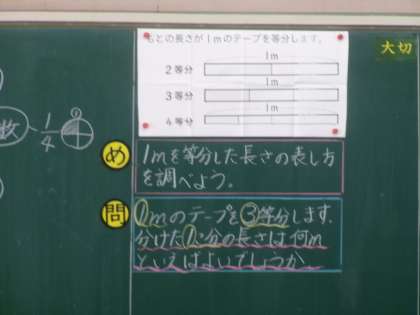 もとの長さが1mのテープを等分します。
1m
2等分
1m
3等分
1m
4等分
大切
数
1/4
め
1mを等分した長さの表し方
を調べよう。
問
1mのテープを③等分します。
分けた1こ分の長さは何m
といえばよいでしょうか